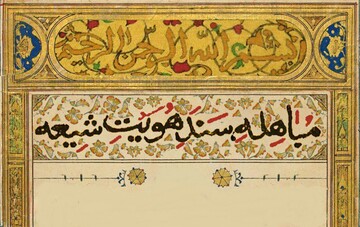 بسم الله الرحمن الرحیم
مباهله سَندِ هویتِ شیعه